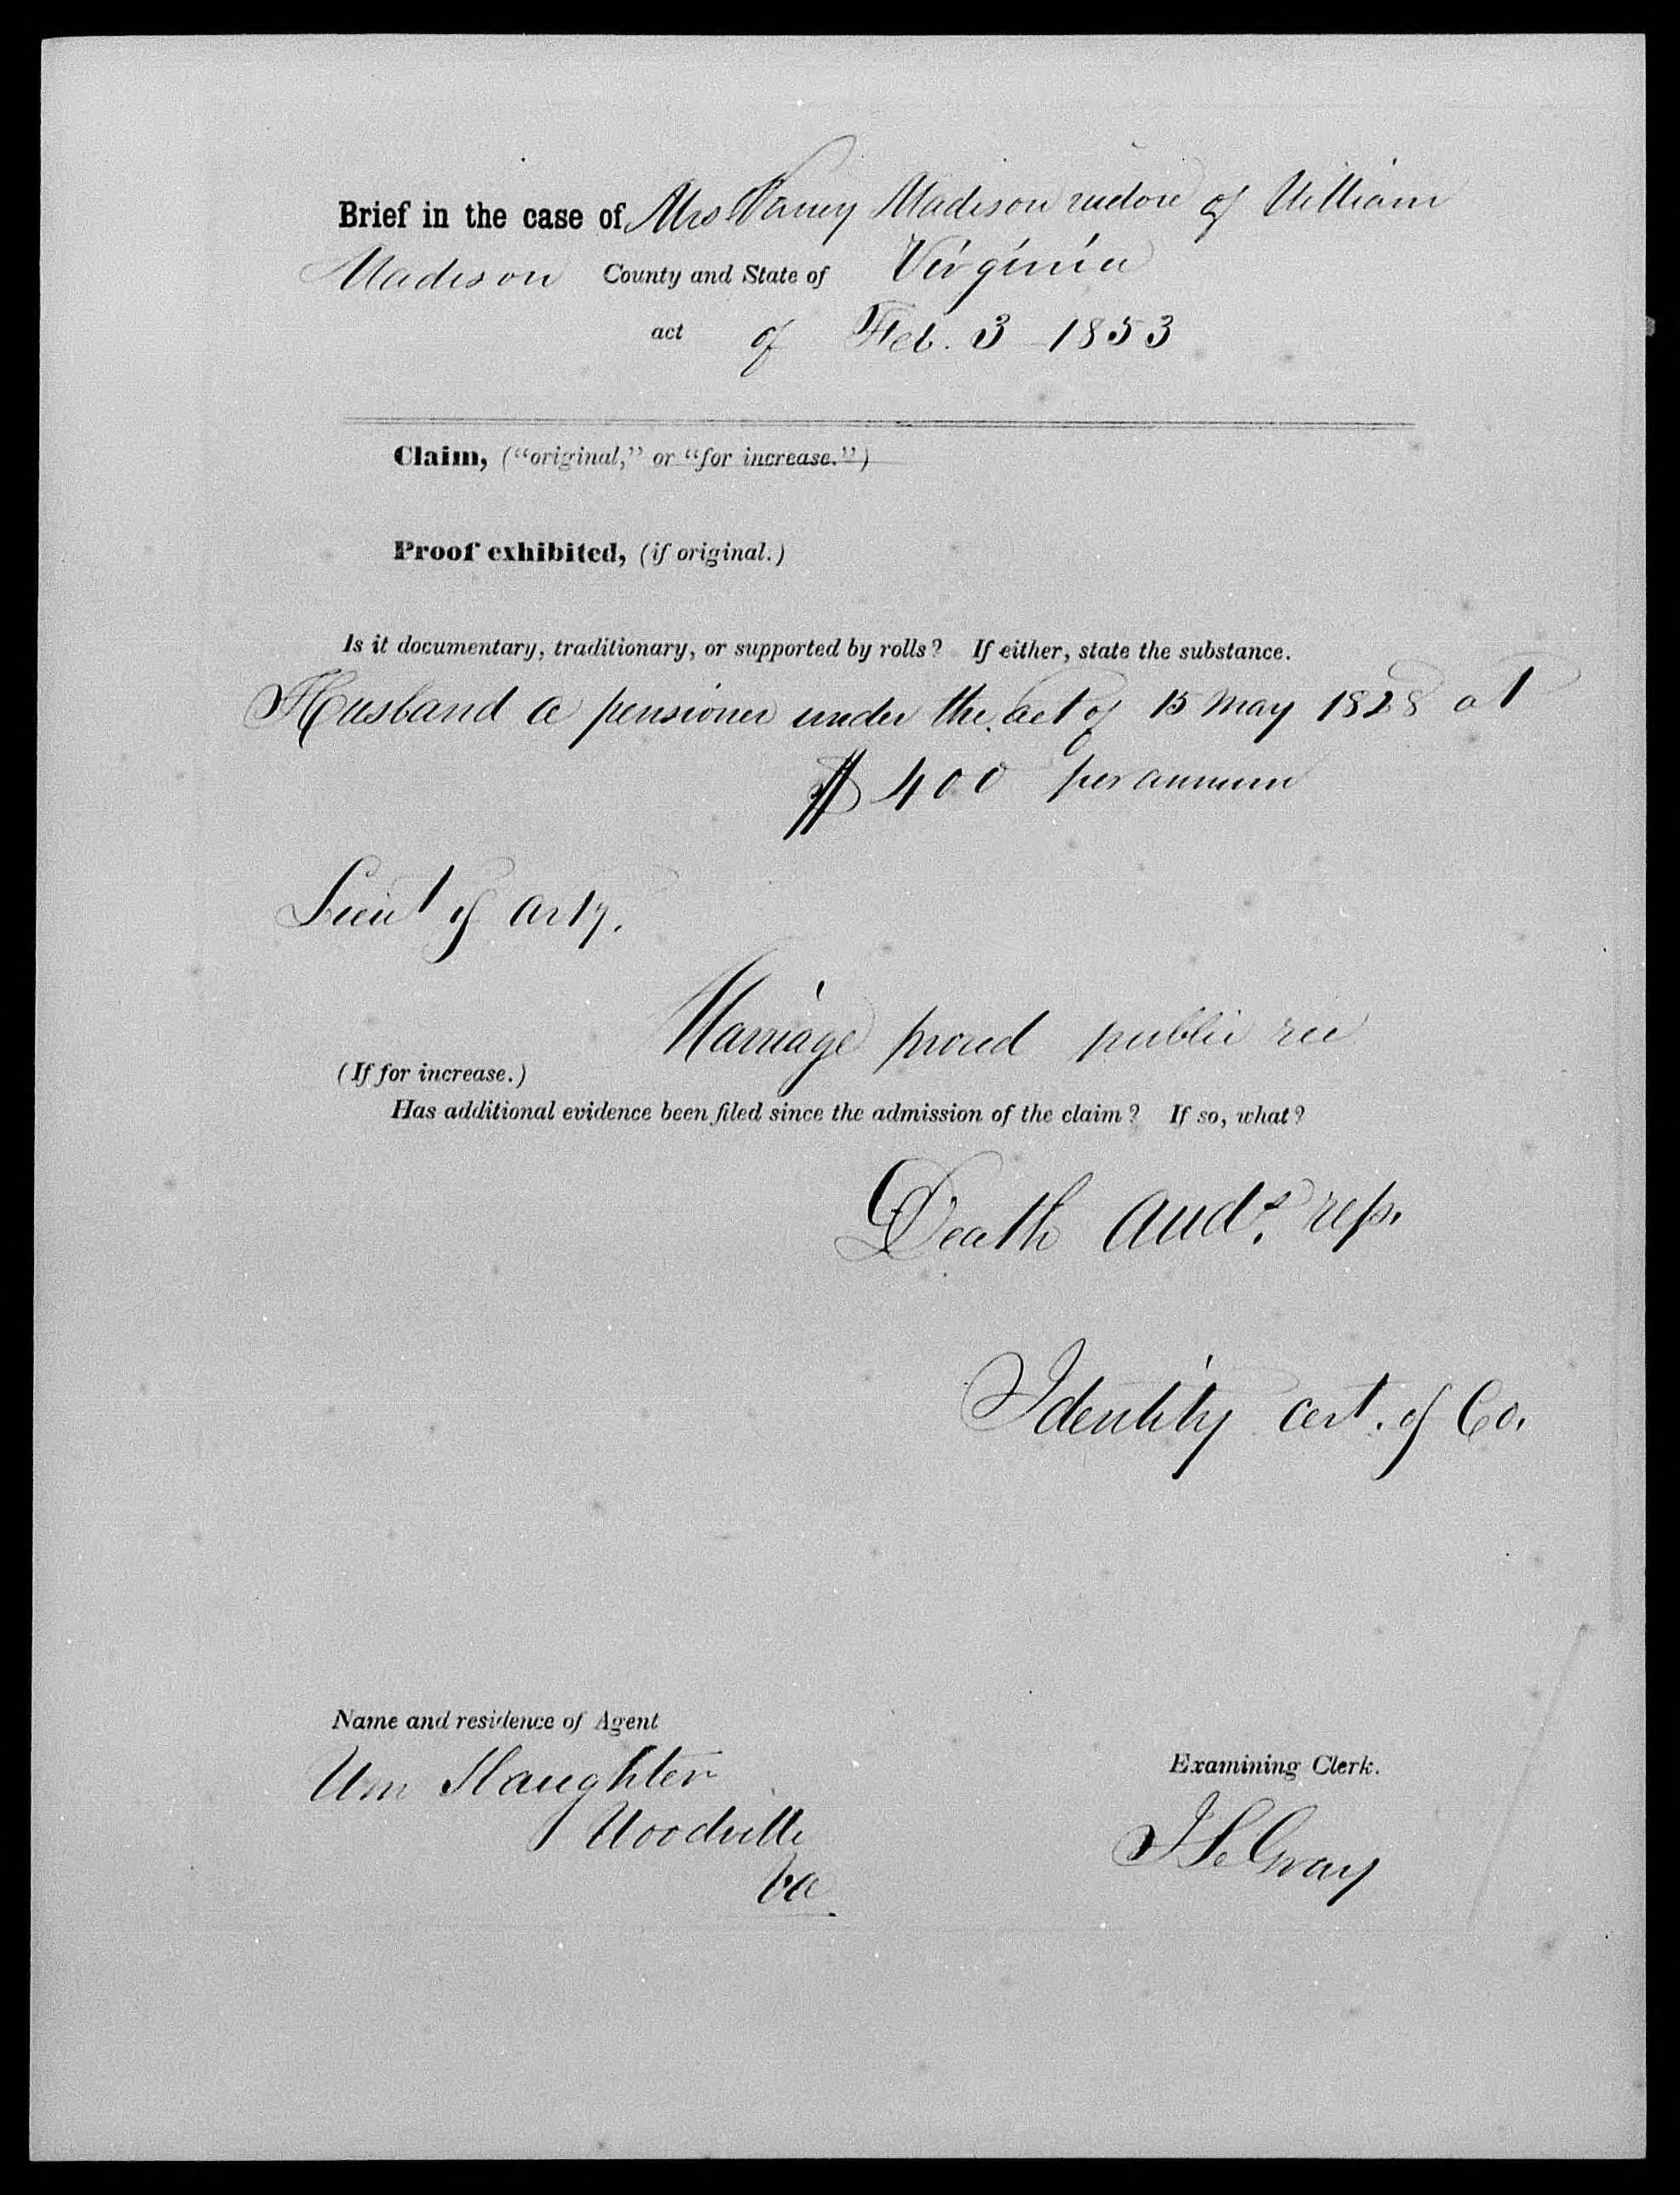 Brief in the case of Mrs Nancy Madison widow of William
Madison County and State of Virginia
act of Feb. 3 1853
Claim, ("original," or "for increase.")
Proof exhibited, (if original.)
Is it documentary, traditionary, or supported by rolls? If either, state the substance.
Husband a pensioner under the act of 15 May 1828 at
$ 400 per annum
Lieut of Arty.
Marriage proved public rec
(If for increase.)
Has additional evidence been filed since the admission of the claim? If so, what?
Death Auds. rep.
Identity cert. of Co.
Name and residence of Agent
Wm Slaughter
Woodville
Va.
Examining Clerk.
Gray